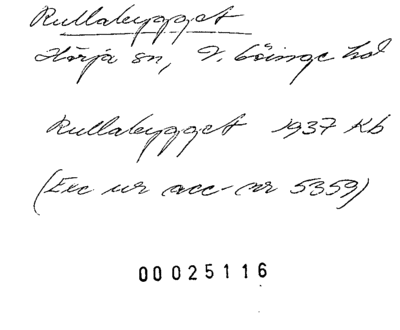 Rullabygget
Hörja sn, V. Göinge hd
Rullabygget 1937 Kb
(Exc ur acc-nr 5359)
00025116